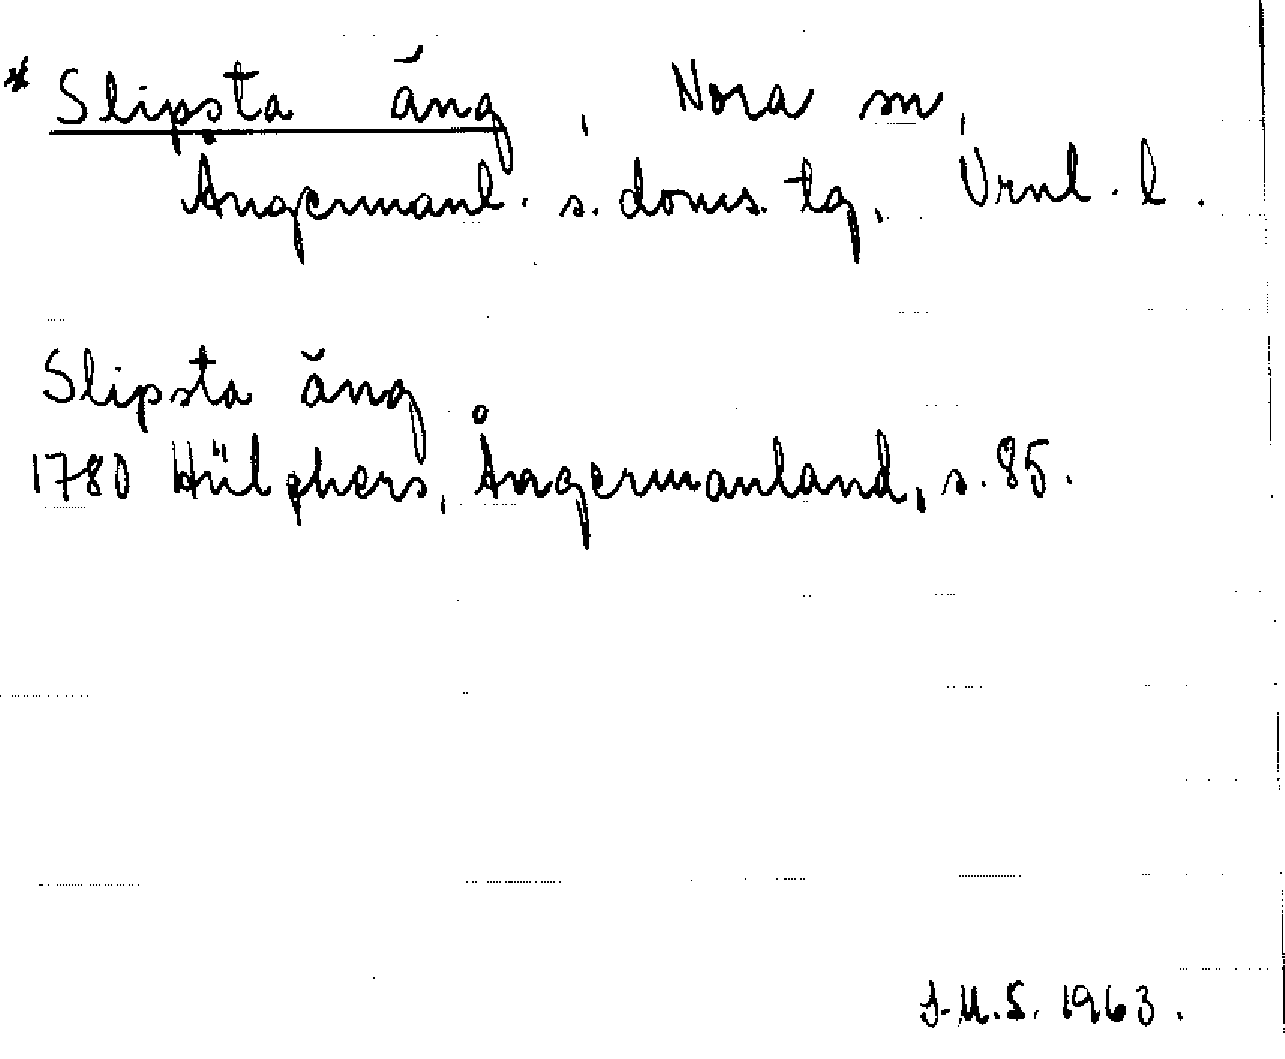 * Slipsta äng, Nora sn,
Ångermanl. s. doms. tg, Vrnl. l.
Slipsta äng
1780 Hülphers, Ångermanland, s. 85.
S.U.S. 1963.